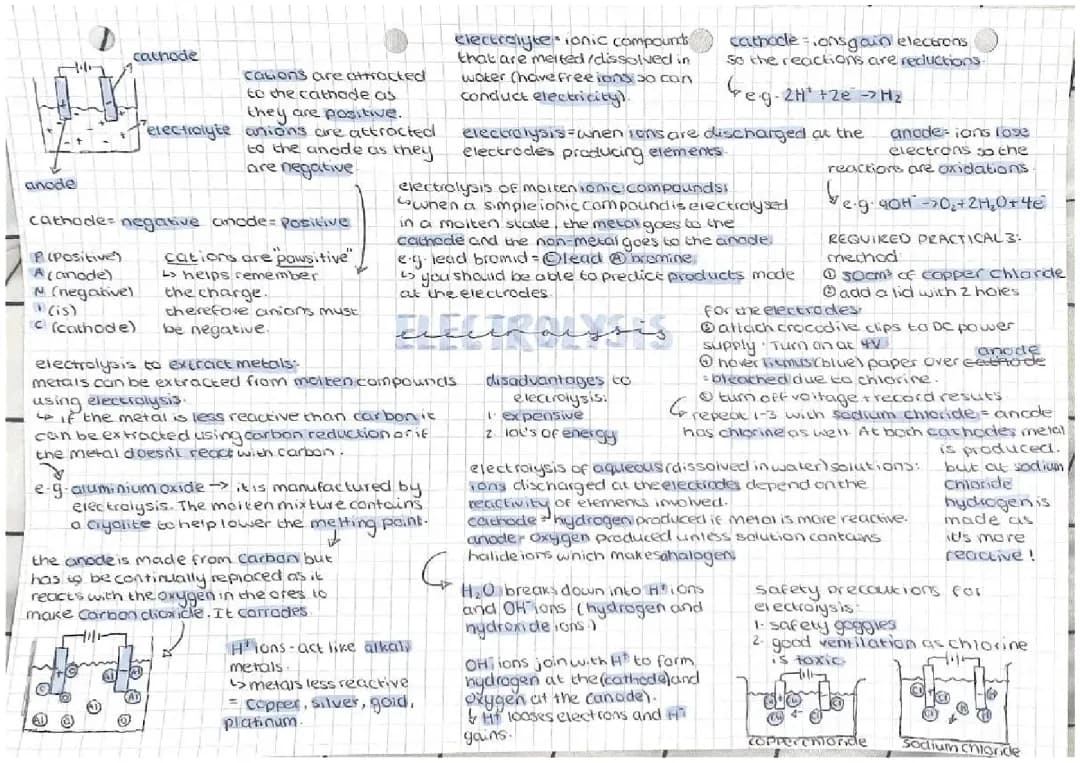 cathode
electrolyte
anode
cations are attracted
to the cathode as
they are positive.
anions are attracted
to the anode as they
are negative
cathode= negative anode= positive
P (positive)
A (anode)
N (negative)
I (is)
C (cathode)
cations are "pawsitive"
↳ helps remember
the charge.
therefore anions must
be negative.
electrolyte = ionic compounds
that are melted/dissolved in
water (have free ions so can
conduct electricity).
cathode = ions gain electrons
so the reactions are reductions.
e.g. 2H⁺ +2e⁻ → H₂
electrolysis = when ions are discharged at the
electrodes producing elements.
anode= ions lose
electrons so the
reactions are oxidations.
e.g. 4OH⁻ → O₂+2H₂O+4e⁻
electrolysis of molten ionic compounds:
↳ when a simple ionic compound is electrolysed
in a molten state, the metal goes to the
cathode and the non-metal goes to the anode.
e.g. lead bromid = Ⓒ lead Ⓐ bromine.
↳ you should be able to predict products made
at the electrodes.
ELECTROLYSIS
electrolysis
REQUIRED PRACTICAL 3:
method:
① 50cm³ of copper chloride
② add a lid with 2 holes
for the electrodes.
③ attach crocodile clips to DC power
supply. Turn on at 4V
④ hover litmus (blue) paper over cathode anode
= bleached due to chlorine.
⑤ turn off voltage + record resuts
↳ repeat 1-3 with sodium chloride = anode
has chlorine as well. At both cathodes metal
is produced.
but at sodium
chloride
hydrogen is
made as
it's more
reactive!
electrolysis to extract metals:
metals can be extracted from molten compounds
using electrolysis.
↳ if the metal is less reactive than carbon it
can be extracted using carbon reduction or if
the metal doesn't react with carbon.
e.g. aluminium oxide → it is manufactured by
electrolysis. The molten mixture contains
a cryolite to help lower the melting point.
the anode is made from carbon but
has to be continually replaced as it
reacts with the oxygen in the ores to
make carbon dioxide. It corrodes.
disadvantages to
electrolysis:
1. expensive
2. lot's of energy
electrolysis of aqueous (dissolved in water) solutions:
ions discharged at the electrodes depend on the
reactivity of elements involved.
cathode = hydrogen produced if metal is more reactive.
anode= oxygen produced unless solution contains
halide ions which makes a halogen.
H₂O breaks down into H⁺ ions
and OH⁻ ions (hydrogen and
hydroxide ions.)
OH⁻ ions join with H⁺ to form
hydrogen at the (cathode) and
oxygen at the (anode).
↳ H⁺ looses electrons and H⁺
gains.
H⁺ ions - act like alkali
metals.
↳ metals less reactive
= copper, silver, gold,
platinum.
safety precautions for
electrolysis:
1. safety goggles
2. good ventilation as chlorine
is toxic
copper chloride
sodium chloride